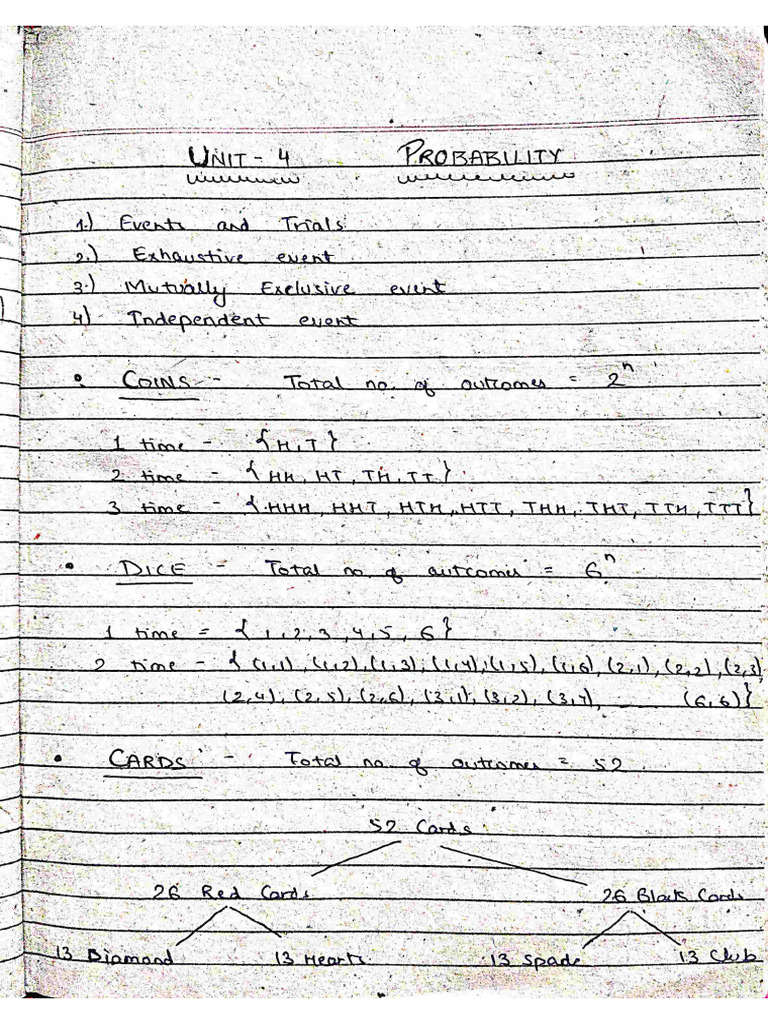 UNIT - 4 PROBABILITY
1.) Events and Trials
2.) Exhaustive event
3.) Mutually Exclusive event
4) Independent event
• COINS - Total no. of outcomes = 2ⁿ
1 time - {H, T}
2 time - {HH, HT, TH, TT}
3 time - {HHH, HHT, HTH, HTT, THH, THT, TTH, TTT}
• DICE - Total no. of outcomes = 6ⁿ
1 time = {1, 2, 3, 4, 5, 6}
2 time - {(1,1), (1,2), (1,3), (1,4), (1,5), (1,6), (2,1), (2,2), (2,3),
(2,4), (2,5), (2,6), (3,1), (3,2), (3,4), __ __ (6,6)}
• CARDS - Total no. of outcomes = 52
52 Cards
26 Red Cards 26 Black Cards
13 Diamond 13 Hearts 13 Spade 13 Club